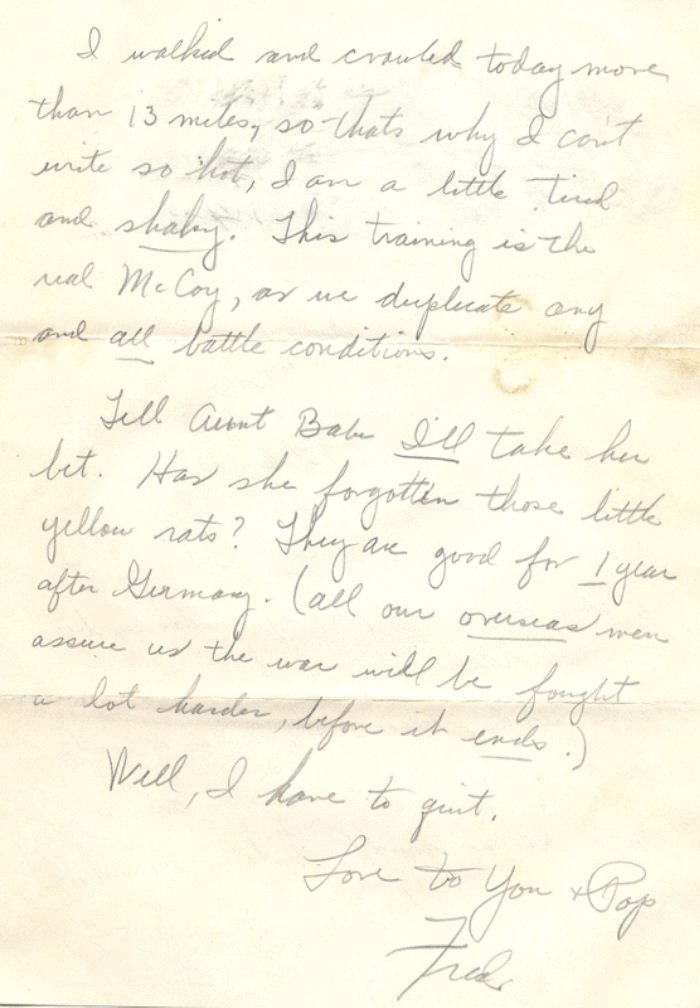 I walked and crawled today more
than 13 miles, so thats why I can't
write so hot, I am a little tired
and shaky. This training is the
real McCoy, as we duplicate any
and all battle conditions.
Tell Aunt Babe I'll take her
bet. Has she forgotten those little
yellow rats? They are good for 1 year
after Germany. (all our overseas men
assure us the war will be fought
a lot harder, before it ends.)
Well, I have to quit.
Love to You + Pop
Fred